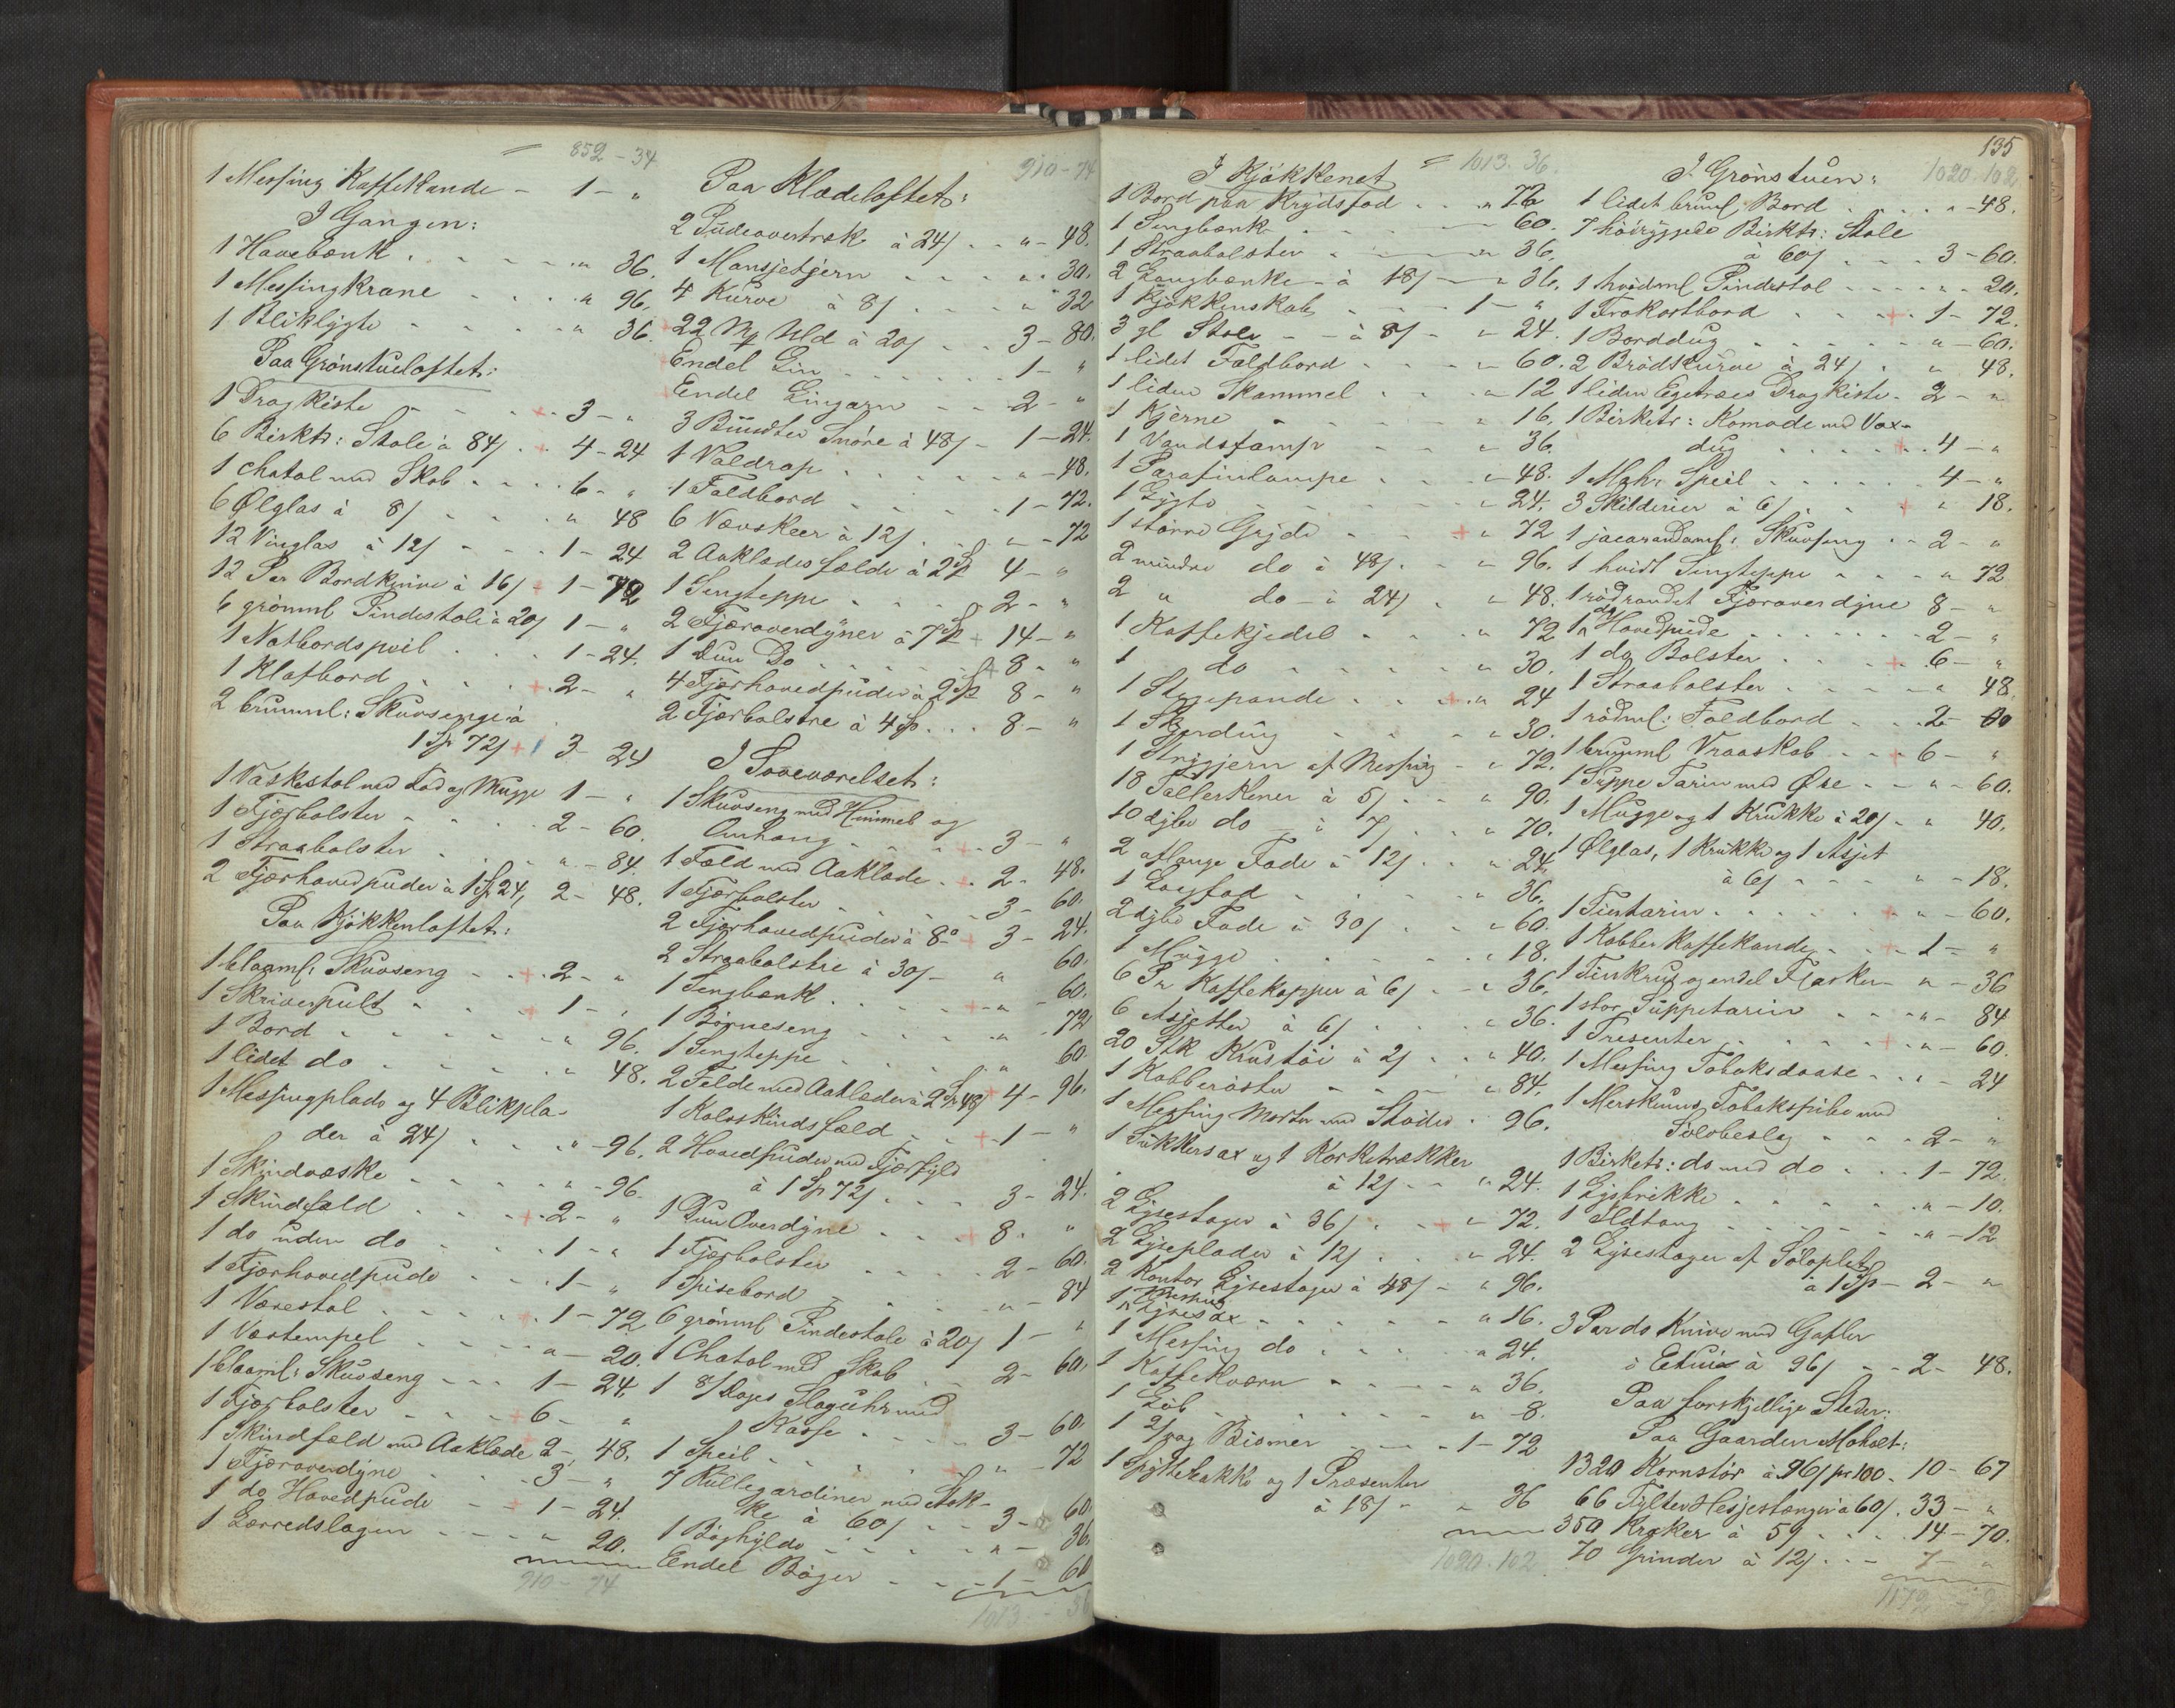 852-34
1 Messing Kaffekande - 1 - "
I Gangen:
1 Havebænk . . . . " 36.
1 Messingkrane . . . " 96.
1 Bliklygte . . . . " 36.
Paa Grønstueloftet:
1 Dragkiste . . . + 3 - "
6 Birktr: Stole à 84/ . + 4 - 24
1 Chatol med Skab . . . 6 - "
6 Ølglas à 8/ . . . " 48
12 Vinglas à 12/ . . . 1 - 24
12 Par Bordknive à 16/ + 1 - 72
6 grønml Pindestole à 20/ 1 - "
1 Natbordspeil . . . 1 - 24.
1 Klafbord . . . + 2 - "
2 brunml: Skuvsenge à
1 Sp 72/ + 3 - 24
1 Vaskestol med Fad og Mugge 1 - "
1 Fjørbolster . . . 2 - 60.
1 Straabolster . . . " - 84.
2 Fjærhovedpuder à 1 Sp 24, 2 - 48.
Paa Kjøkkenloftet:
1 blaaml: Skuvseng . . + 2 - "
1 Skriverpult . . . + 1 - "
1 Bord . . . . " 96.
1 lidet do . . . . " 48.
1 Messingplade og 4 Blikpla-
der à 24/ . . . " - 96.
1 Skindvæske . . . " - 96
1 Skindfæld . . . + 2 - "
1 do uden do . . . 1 - "
1 Fjærhovedpude . . . 1 - "
1 Vævestol . . . 1 - 72
1 Væstempel . . . " - 20.
1 blaaml: Skuvseng . . . 1 - 24.
1 Fjærbolster . . . + 6 - "
1 Skindfæld med Aaklæde 2 - 48.
1 Fjæroverdyne . . . 3 - "
1 do Hovedpude . . + 1 - 24.
1 Lærredslagen . . . " 20.
910 - 74
910 - 74
Paa Klædeloftet:
2 Pudeovertræk à 24/ . . " - 48.
1 Mansjetjern . . . " - 30.
4 Kurve à 8/ . . . " 32
+ 22 Mp Uld à 20/ . . 3 - 80.
Endel Lin . . . . 1 - "
Endel Lingarn . . . 2 - "
3 Bundter Snøre à 48/ - 1 - 24.
1 Valdrap . . . . " - 48.
1 Foldbord . . . . 1 - 72.
6 Vævskeer à 12/ . . " - 72
2 Aaklædesfælde à 2 Sp 4 - "
1 Sengteppe . . . 2 - "
2 Fjæroverdyner à 7 Sp + 14 - "
1 Duun Do . . . + 8 - "
4 Fjærhovedpuder à 2 Sp 8 - "
2 Fjærbolstre à 4 Sp . . 8 - "
I Soveværelset:
1 Skuvseng med Himmel og
Omhang . . . + 3 - "
1 Fæld med Aaklæde . + 2 - 48.
1 Fjærbolster . . . 3 - 60.
2 Fjærhovedpuder à 8 o + 3 - 24.
2 Straabolstre à 30/ - " 60.
1 Sengbænk . . . + " - 60.
1 Børneseng . . . . " - 72
1 Sengteppe . . . . " 60.
2 Felde med Aaklæder à 2 Sp 48/ + 4 - 96.
1 Kalveskindsfæld . . + 1 - "
2 Hovedpuder med Fjærfyld
à 1 Sp 72/ . . . 3 - 24.
1 Duun Overdyne . . + 8 - "
1 Fjærbolster . . . 2 - 60.
1 Spisebord . . . " - 84
6 grønml Pindestole à 20/ 1 - "
1 Chatol med Skab . . 2 - 60.
1 8/Dages Slaguhr med
Kasse . . . 3 - 60.
1 Speil . . . + " - 72
7 Rullegardiner med Stok-
ke à 60/ . . 3 - 60.
1 Boghylde . . . " - 36.
Endel Bøger . . . 1 - 60
1013 - 36
I Kjøkkenet = 1013. 36.
1 Bord paa Krydsfod . . " 72
1 Sengbænk . . . 60.
1 Straabolster . . . " 36.
2 Langbænke - à 18/ - " 36.
1 Kjøkkenskab . . . 1 - "
3 gl Stole - - à 8/ - " 24.
1 lidet Foldbord . . . " 60.
1 liden Skammel . . . " 12
1 Kjerne . . . . " 16.
1 Vandstamp . . . " 36.
1 Parafinlampe . . . " 48.
1 Lygte . . . . " 24.
1 større Gryde . . + " 72
2 mindre do à 48/ . . " 96.
2 " do - à 24/ . . " 48.
1 Kaffekjedel . . . " 72
1 do . . . . " 30.
1 Stegepande . . + " 24
1 Skjerding . . . " 30.
1 Strygjern af Messing . " 72.
18 Tallerkener à 5/ . . " 90.
10 dybe do - à 7/ . . " 70.
2 aflange Fade à 12/ . . " 24.
1 Lerfad . . . . " 36.
2 dybe Fade à 30/ . . " 60.
1 Mugge . . . . " 18.
6 Pr Kaffekopper à 6/ . . " 36.
6 Asjetter à 6/ . . . " 36.
20 Stk Krustøi à 2/ . . " 40.
1 Kobberøster . . . " 84.
1 Messing Morter med Støder . 96.
1 Sukkersax og 1 Korketrækker
à 12/ - - " 24.
2 Lysestager à 36/ . . + " 72.
2 Lyseplader à 12/ . . " 24.
2 Kontor Lysestager à 48/ - " 96.
1 Lysesax . . . . " 16.
1 Messing do . . . . " 24.
1 Kaffekværn . . . " 36.
1 Løb . . . . " 8.
1 2/pag Bismer . . . 1 - 72
1 Spyttebakke og 1 Præsenter
à 18/ - " 36
1020.102.
135
I Grønstuen: 1020.102
1 lidet bruml Bord . . . " - 48.
7 høiryggede Birktr: Stole
à 60/ . . . 3 - 60.
1 hvidml Pindestol . . . " 20.
1 Frokostbord . . . + 1 - 72.
1 Borddug . . . . " - 60.
2 Brødkurve à 24/ . . " 48.
1 liden Egetræes Dragkiste . 2 - "
1 Birketr: Komode med Vox-
dug . . . . + 4 - "
1 Mah: Speil . . . 4 - "
3 Skilderier à 6/ . . + " 18.
1 jacarandaml: Skuvseng . . 2 - "
1 hvidt Sengteppe . . . " 72
1 rødrandet Fjæroverdyne 8 - "
1 do Hovedpude . . . 2 - "
1 do Bolster . . . + 6 - "
1 Straabolster . . . " 48.
1 rødml: Foldbord . . 2 -
1 brunml Vraaskab . . + 6 - "
1 Suppe Tarin med Øse . . " - 60.
1 Mugge og 1 Krukke à 20/ . " 40.
1 Ølglas, 1 Krukke og 1 Asjet
à 6/ . . . " - 18.
1 Tintarin . . . + " - 60.
1 Kobber Kaffekande . . + 1 - "
1 Tinkrus og endel Flasker - " - 36
1 stor Suppetarin . . . " - 84
1 Presenter . . . + " - 60.
1 Messing Tobaksdaase . . " - 24
1 Merskums Tobakspibe med
Sølvbeslag . . . 2 - "
1 Birketr: do med do . . 1 - 72.
1 Lysbrikke . . . " - 10.
1 Ildtang . . . . " - 12
2 Lysestager af Sølvplet
à 1 Sp - 2 - "
3 Par do Knive med Gafler
i Etuie à 96/ - - 2 - 48.
Paa forskjellige Steder:
Paa Gaarden Moholt:
1320 Kornstør à 96/ pr 100 - 10 - 67
66 Tylter Hesjestænger à 60/ . 33 - "
350 Kroker à 5/ . . . 14 - 70.
70 Grinder à 12/ . . . 7 - "
1172